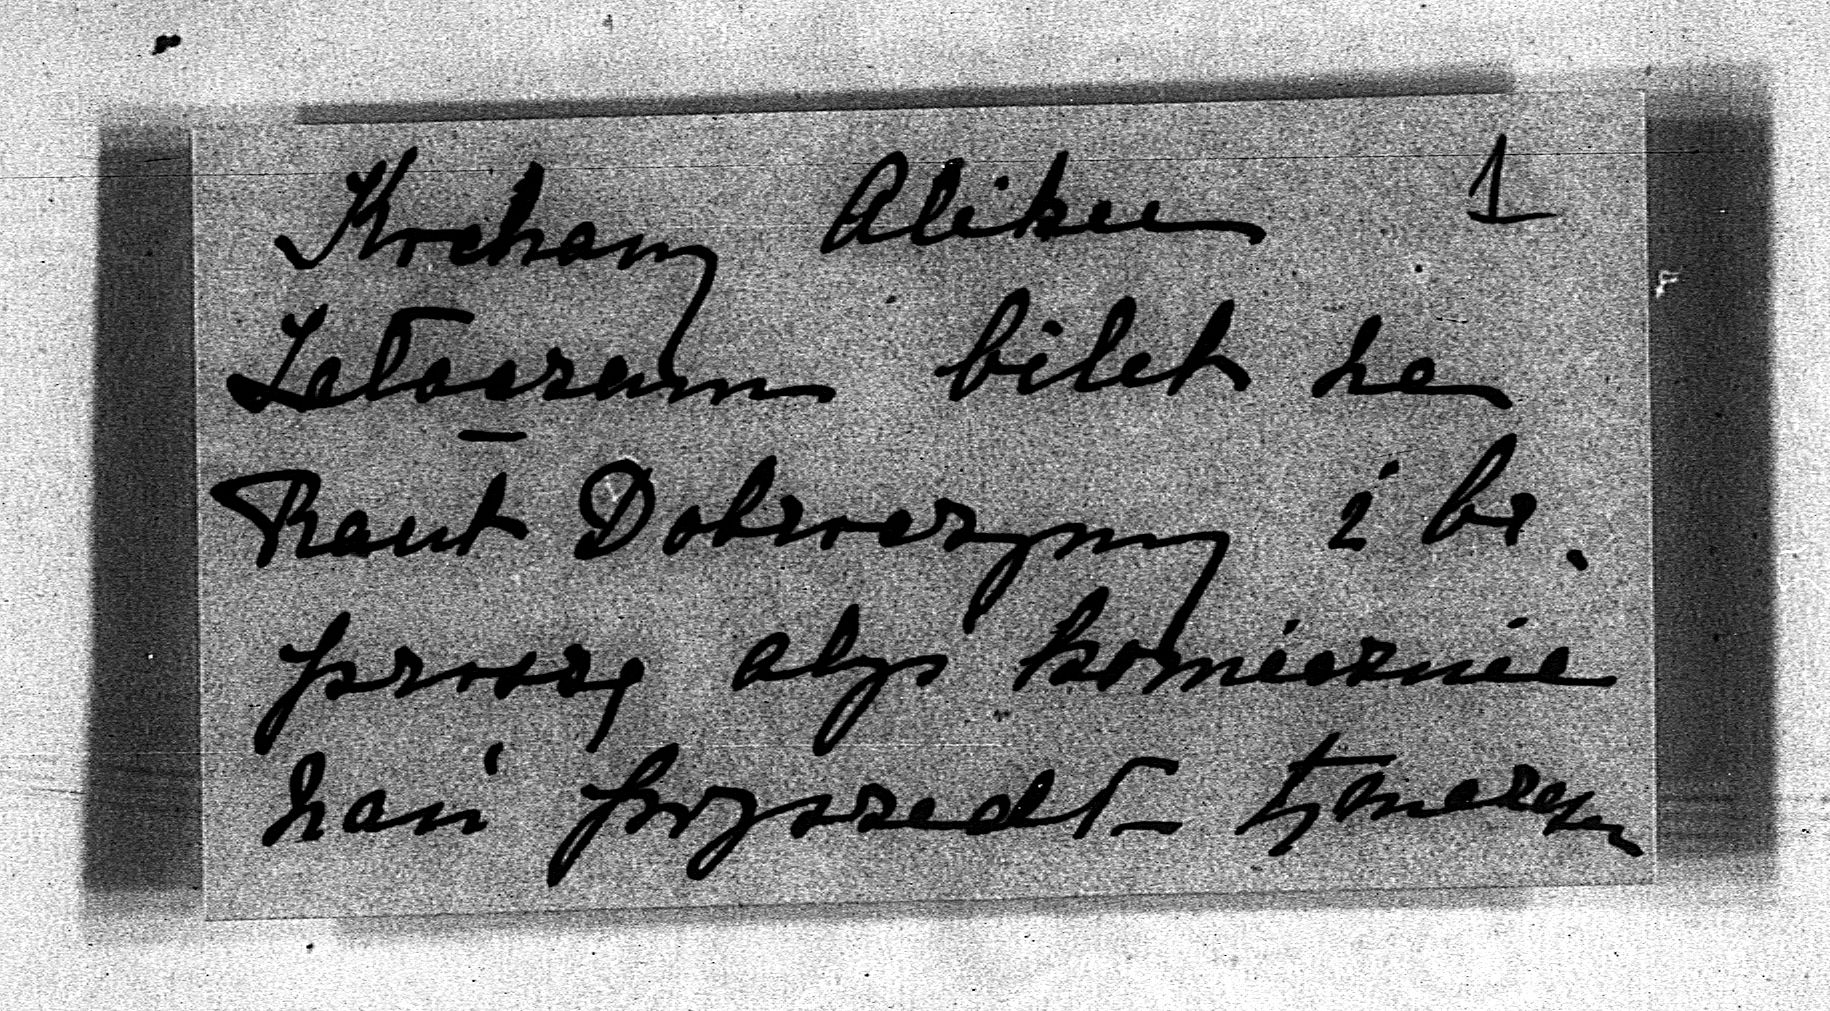 Kochany Aliku 1
Załączam bilet na
Raut Dobroczynny i b.
proszę abyś koniecznie
nań przyszedł